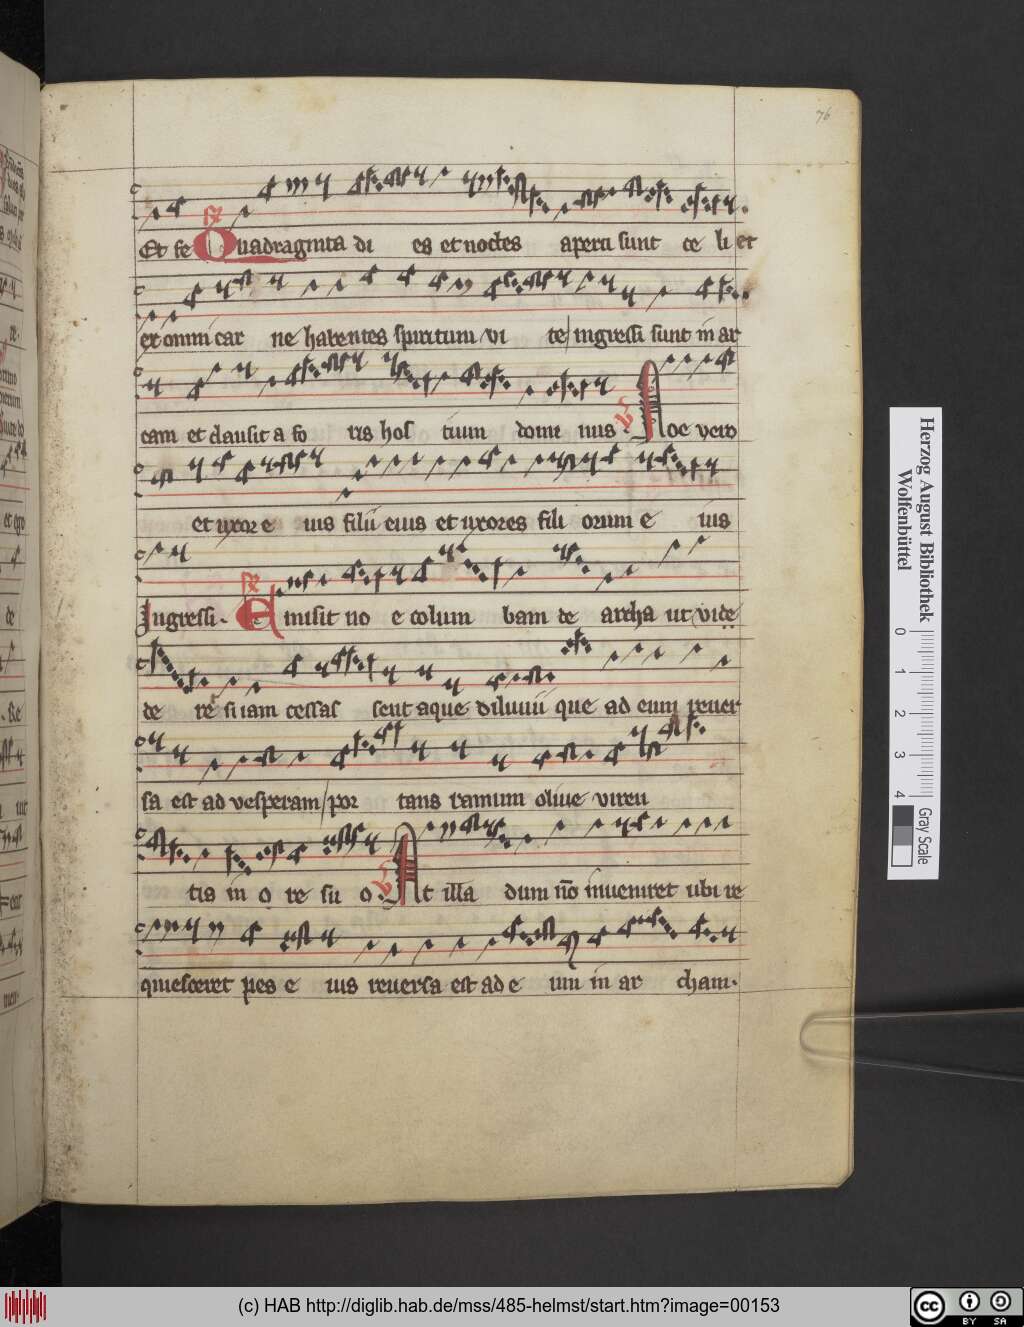 76
Et se Quadraginta di es et noctes aperti sunt ce li et
ex omni car ne habentes spiritum vi te ingressi sunt in ar
cam et clausit a fo ris hos tium domi nus. Noe vero
et uxor e ius filii eius et uxores fili orum e ius
Ingressi. Emisit no e colum bam de archa ut vide
de re si iam cessas sent aque diluuii que ad eum reuer
sa est ad vesperam por tans ramum oliue viren
tis in o re su o. At illa dum nō inueniret ubi re
quiesceret pes e ius reuersa est ad e um in ar cham.
Herzog August Bibliothek
Wolfenbüttel
0 1 2 3 4
Gray Scale
(c) HAB http://diglib.hab.de/mss/485-helmst/start.htm?image=00153
cc BY SA